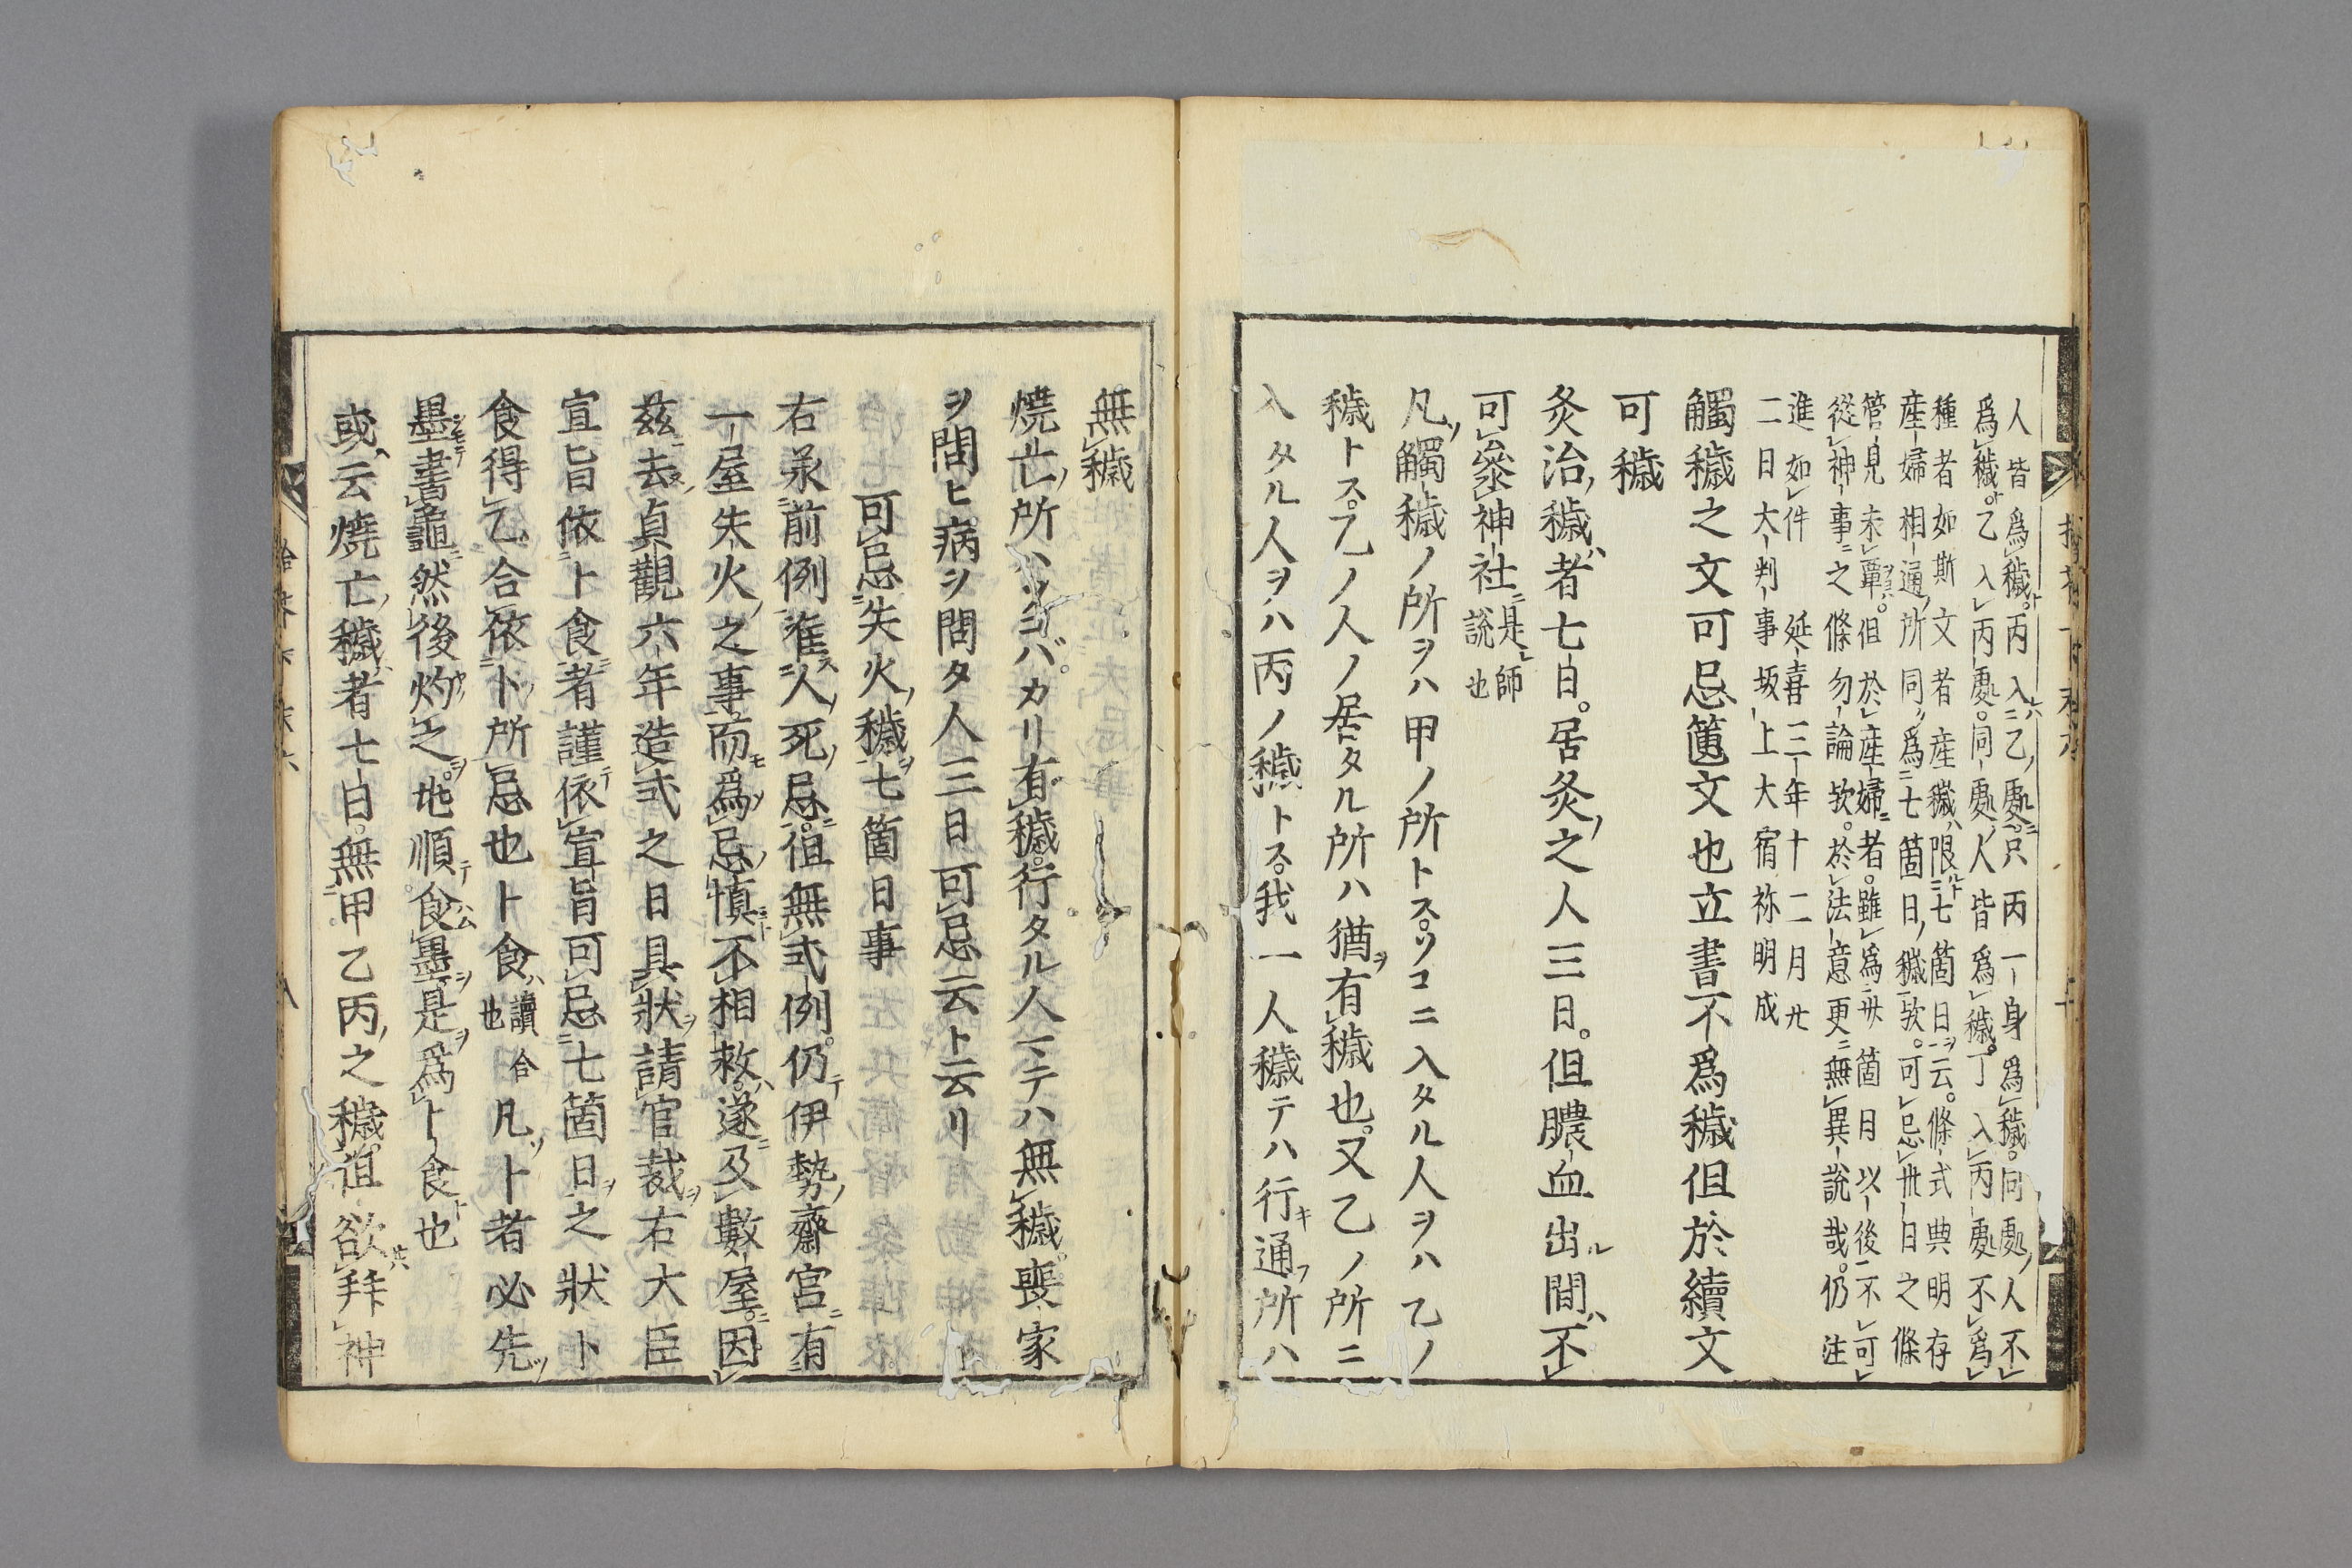 人皆爲穢丙入乙處只丙一身爲穢同處人不
爲穢乙入丙處同處人皆爲穢丁入丙處不爲
種者如斯文者産穢限七箇日云條式典明存
産婦相通所同爲七箇日穢欤可忌卅日之條
管見未覃但於産婦者雖爲卅箇月以後不可
從神事之條勿論欤於法意更無異說哉仍注
進如件　延喜三年十二月廿
二日大判事坂上大宿祢明成
觸穢之文可忌篋文也立書不爲穢但於續文
可穢
灸治穢者七日居灸之人三日但膿血出間不
可叅神社是師
說也
凡觸穢ノ所ヲハ甲ノ所トスソコニ入タル人ヲハ乙ノ
穢トス乙ノ人ノ居タル所ハ猶有穢也又乙ノ所ニ
入タル人ヲハ丙ノ穢トス我一人穢テハ行通所ハ
無穢
燒亡所ハソコバカリ有穢行タル人マテハ無穢喪家
ヲ問ヒ病ヲ問タ人三日可忌云ト云リ
可忌失火穢七箇日事
右兼前例准人死忌但無式例仍伊勢齋宮有
一屋失火之事而爲忌愼不相救遂及數屋因
茲去貞觀六年造式之日具狀請官裁右大臣
宣旨依卜食者謹依宣旨可忌七箇日之狀卜
食得乙合依卜所忌也卜食讀合
也
凡卜者必先
墨書龜然後灼之兆順食墨是爲卜食也
或云燒亡穢者七日無甲乙丙之穢但欲拜神